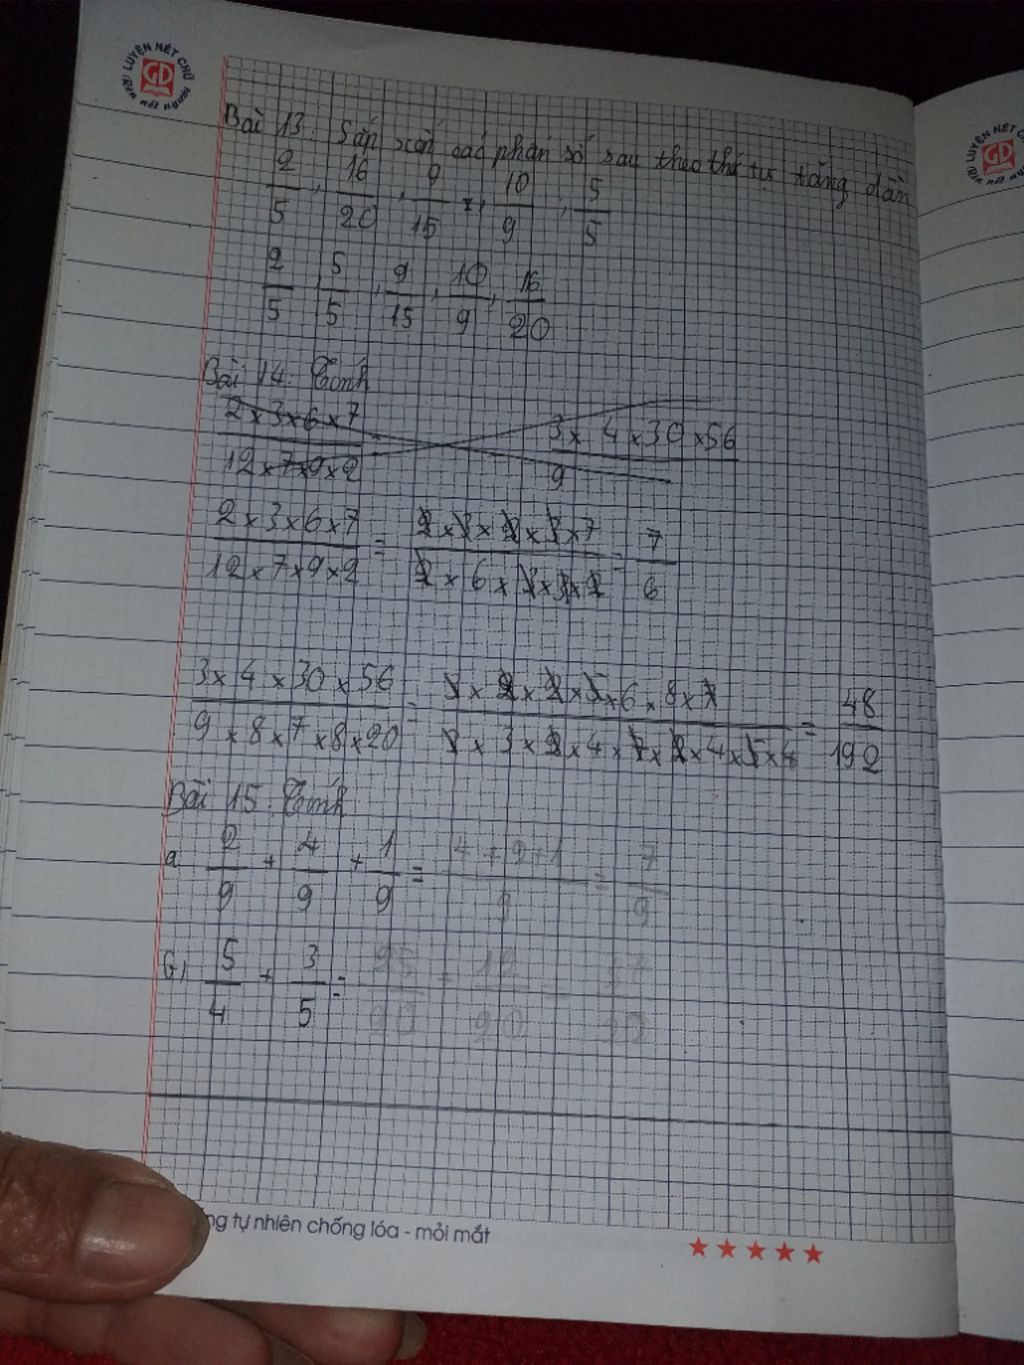 LUYỆN NÉT CHỮ
GD
rèn nết người
Bài 13: Sắp xếp các phân số sau theo thứ tự tăng dần
2/5, 16/20, 9/15, 10/9, 5/5
2/5, 5/5, 9/15, 10/9, 16/20
Bài 14: Tính
2×3×6×7 / 12×7×9×2    3×4×30×56 / 9
2×3×6×7 / 12×7×9×2 = 2×3×2×3×7 / 2×6×3×3×2 = 7/6
3×4×30×56 / 9×8×7×8×20 = 3×2×2×5×6×8×7 / 3×3×2×4×7×2×4×5×4 = 48/192
Bài 15: Tính
a, 2/9 + 4/9 + 1/9 = 4+2+1 / 9 = 7/9
b, 5/4 + 3/5 = 25/20 + 12/20 = 37/20
ng tự nhiên chống lóa - mỏi mắt